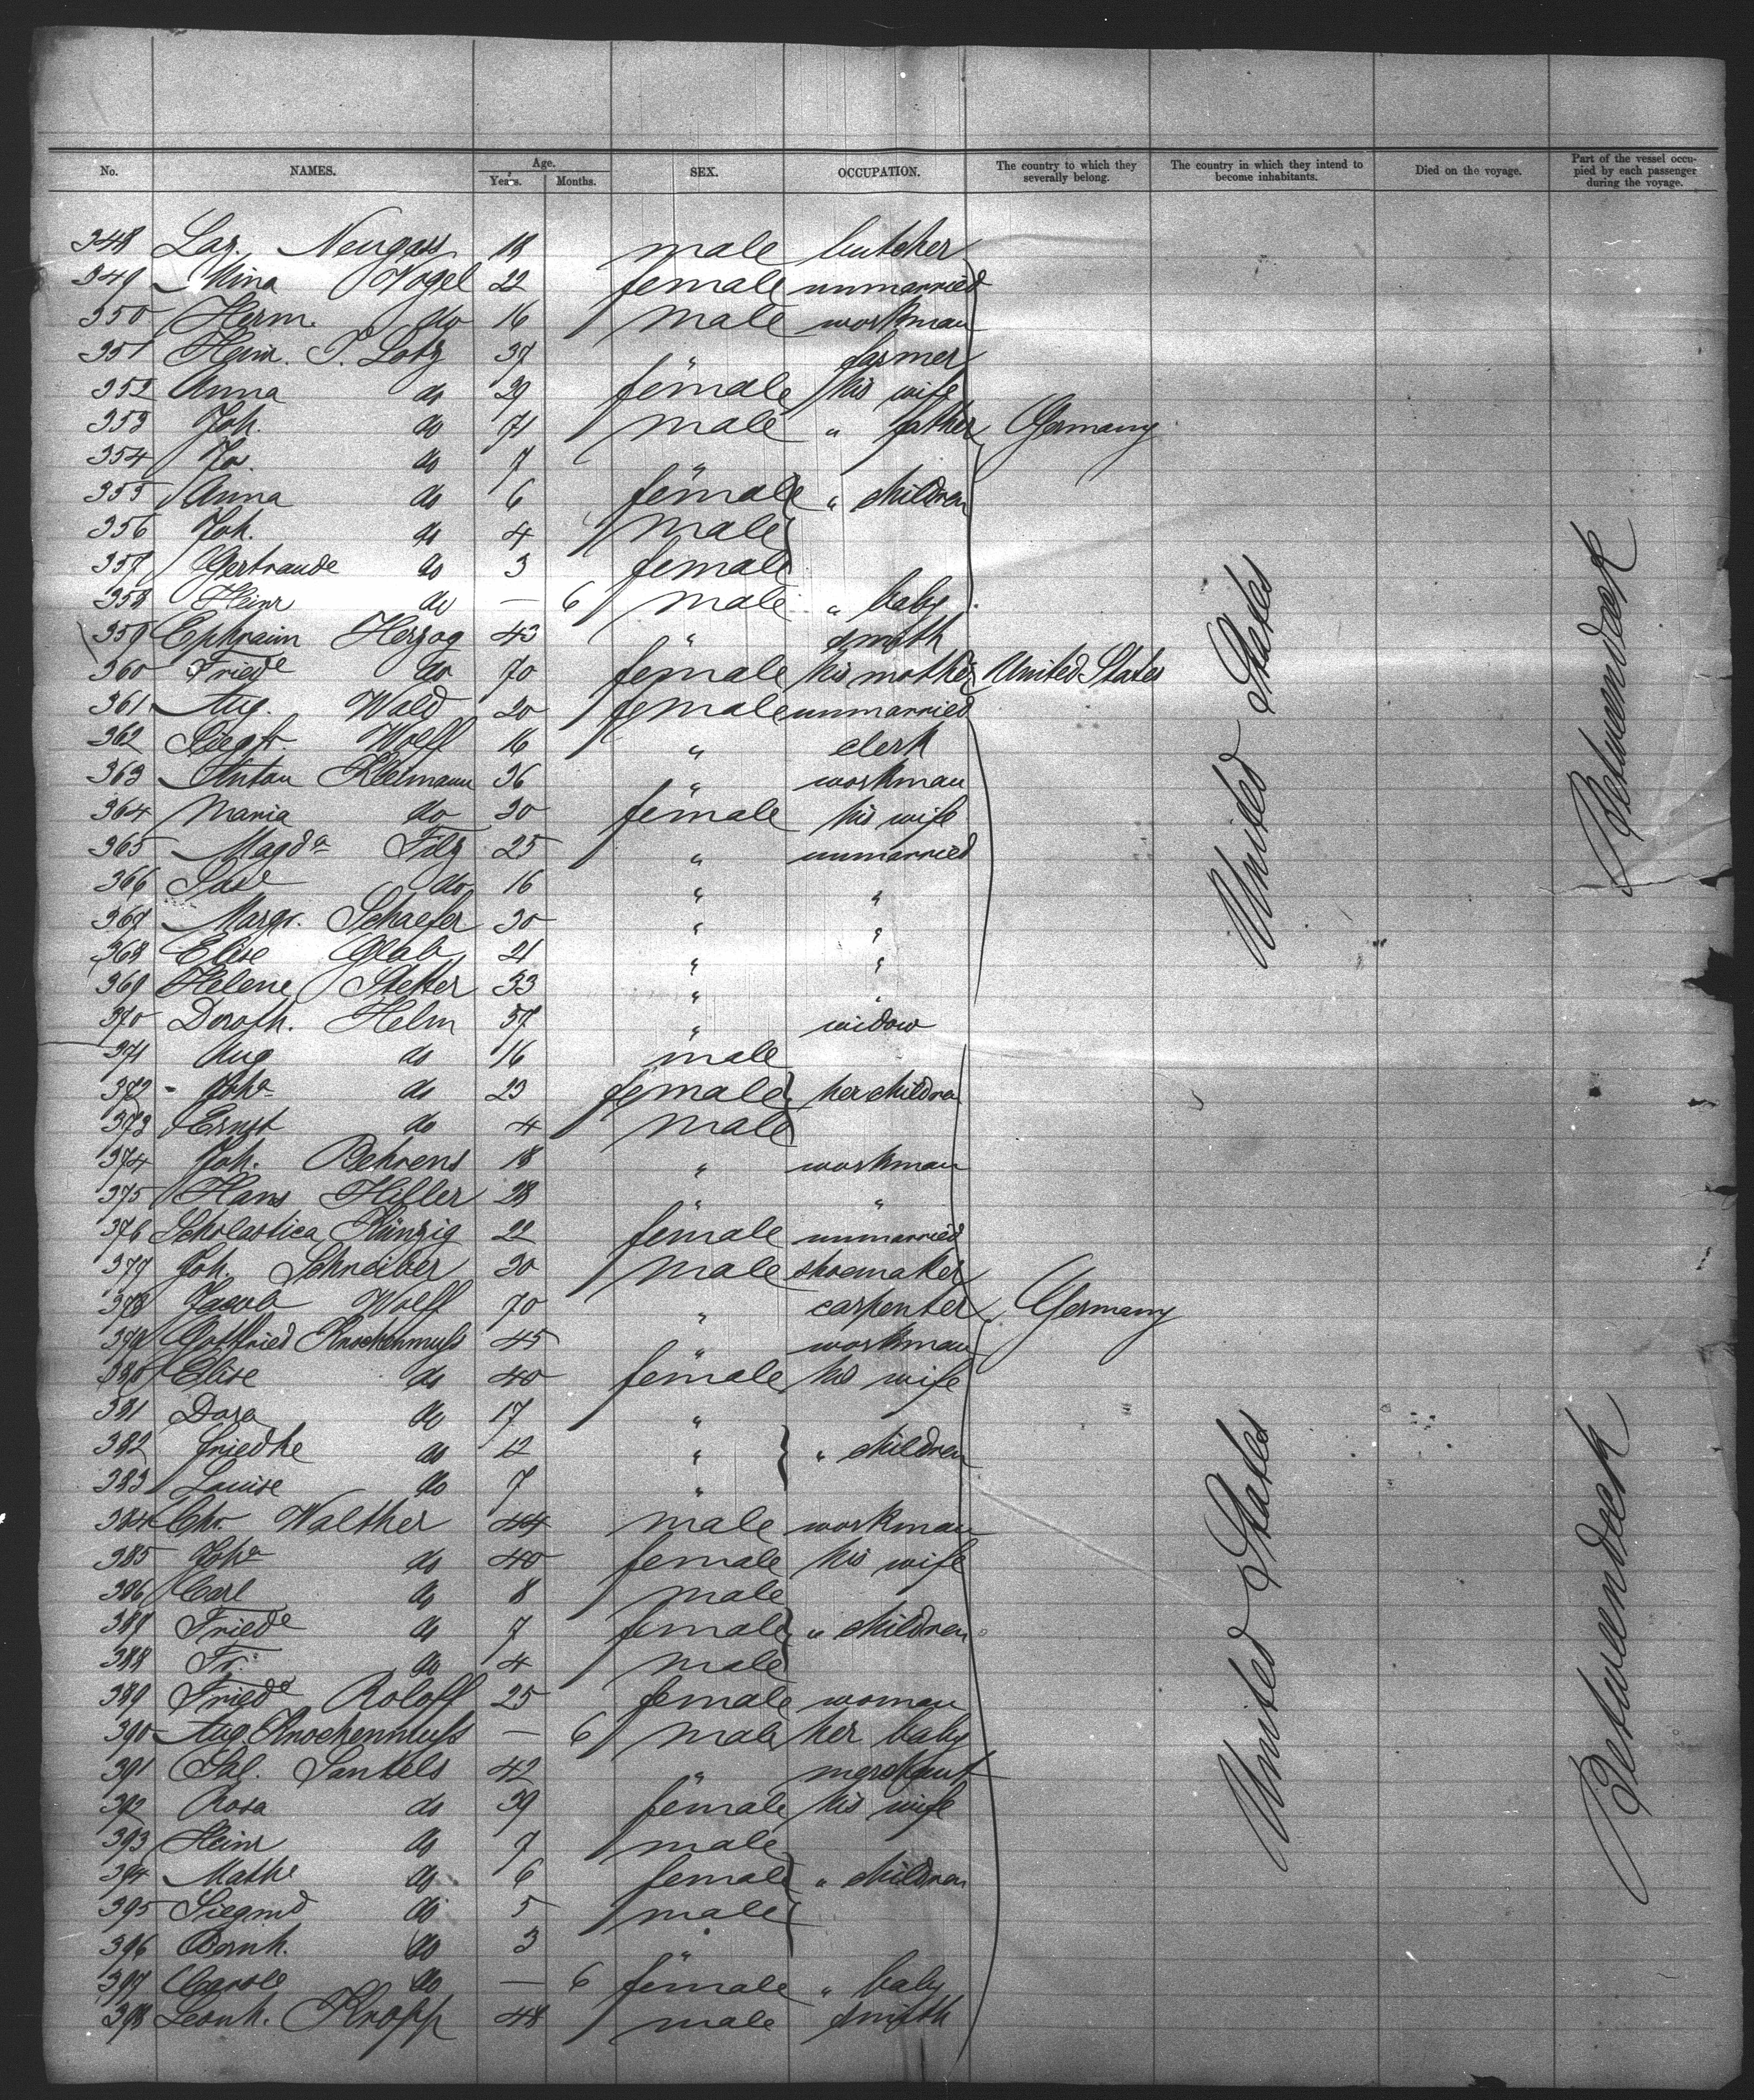 No. NAMES. Age. Years. Months. SEX. OCCUPATION. The country to which they severally belong. The country in which they intend to become inhabitants. Died on the voyage. Part of the vessel occupied by each passenger during the voyage.
348 Laz. Neugass 18 male butcher
349 Mina Vogel 22 female unmarried
350 Herm. do 16 male workman
351 Heinr. P. Lotz 37 " farmer
352 Anna do 29 female his wife
353 Joh. do 71 male " father Germany
354 Jo. do 7 "
355 Anna do 6 female " children
356 Joh. do 4 male
357 Gertraude do 3 female
358 Heinr do — 6 male " baby
359 Ephraim Herzog 43 " smith
360 Friede do 70 female his mother United States
361 Aug. Wald 20 female unmarried
362 Siegfr. Wolff 16 " clerk
363 Anton Kleimann 36 " workman
364 Maria do 30 female his wife
365 Magda Filz 25 " unmarried
366 do 16 " "
367 Margr. Schaefer 30 " "
368 Elise Glab 21 " "
369 Helene Stetter 33 " "
370 Doroth. Helm 57 " widow
371 Aug do 16 male
372 Joha do 23 female her children
373 Ernst do 4 male
374 Joh. Behrens 18 " workman
375 Hans Hifler 28 " "
376 Scholastica Künzig 22 female unmarried
377 Joh. Schreiber 30 male shoemaker
378 Jacob Wolff 70 " carpenter Germany
379 Gottfried Knochenmuss 45 " workman
380 Elise do 40 female his wife
381 Dora do 17 "
382 Friedke do 12 " " children
383 Louise do 7 "
384 Chr. Walther 44 male workman
385 Joha do 40 female his wife
386 Carl do 8 male
387 Friede do 7 female " children
388 Fr. do 4 male
389 Friede Roloff 25 female woman
390 Aug. Knochenmuss — 6 male her baby
391 Sal. Santels 42 " merchant
392 Rosa do 39 female his wife
393 Heinr do 7 male
394 Mathe do 6 female " children
395 Siegmd do 5 male
396 Bernh. do 3 "
397 Carole do — 6 female " baby
398 Leonh. Kropp 48 male smith
United States
Betweendeck
United States
Betweendeck